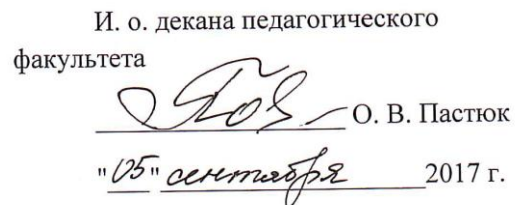 И. о. декана педагогического
факультета
О. В. Пастюк
"05" сентября 2017 г.